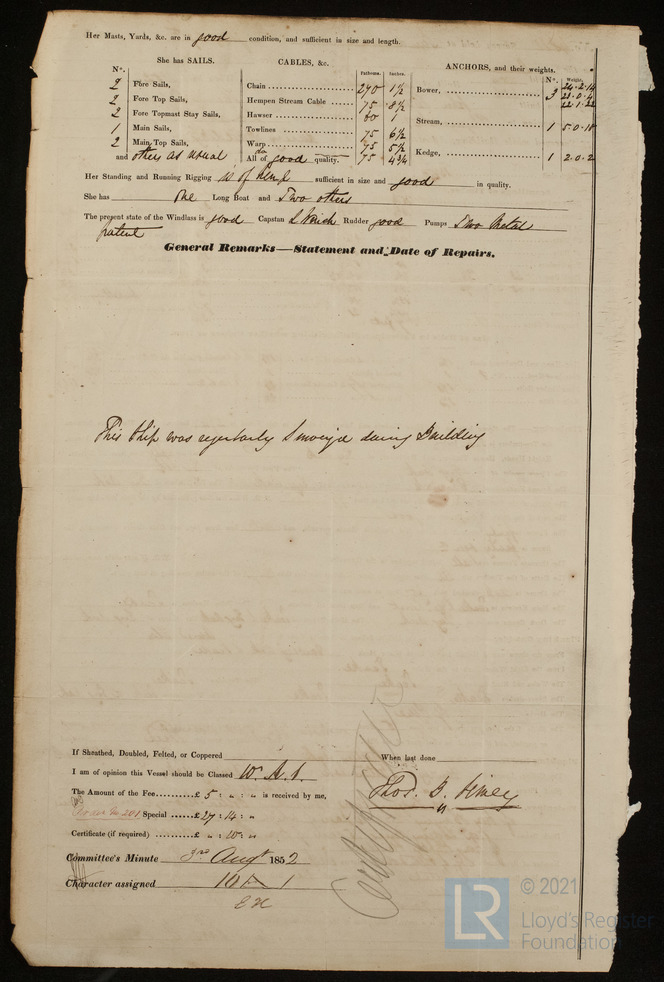 Her Masts, Yards, &c. are in good condition, and sufficient in size and length.
She has SAILS. CABLES, &c. ANCHORS, and their weights.
N°. Fathoms. Inches. N°. Weight.
2 Fore Sails, Chain 270 1½ Bower, 3 24.2.14
2 Fore Top Sails, Hempen Stream Cable 75 8½ 23.0.4
2 Fore Topmast Stay Sails, Hawser 60 1 22.1.22
1 Main Sails, Towlines 75 6½ Stream, 1 5.0.18
2 Main Top Sails, Warp 75 5½
and others as usual All of good quality. 75 4¾ Kedge, 1 2.0.2
Her Standing and Running Rigging is of hemp sufficient in size and good in quality.
She has one Long Boat and Two others
The present state of the Windlass is good Capstan Rudder good Pumps Two Metal
patent
General Remarks—Statement and Date of Repairs.
This Ship was regularly during Building
If Sheathed, Doubled, Felted, or Coppered When last done
I am of opinion this Vessel should be Classed A.1.
The Amount of the Fee £ 5 : " : " is received by me,
Special £ 27 : 14 : "
Thos. B.
Certificate (if required) £ " : 10 : "
Committee's Minute 3rd Augt 1852
Character assigned 10 A 1
© 2021
LR
Lloyd's Register
Foundation